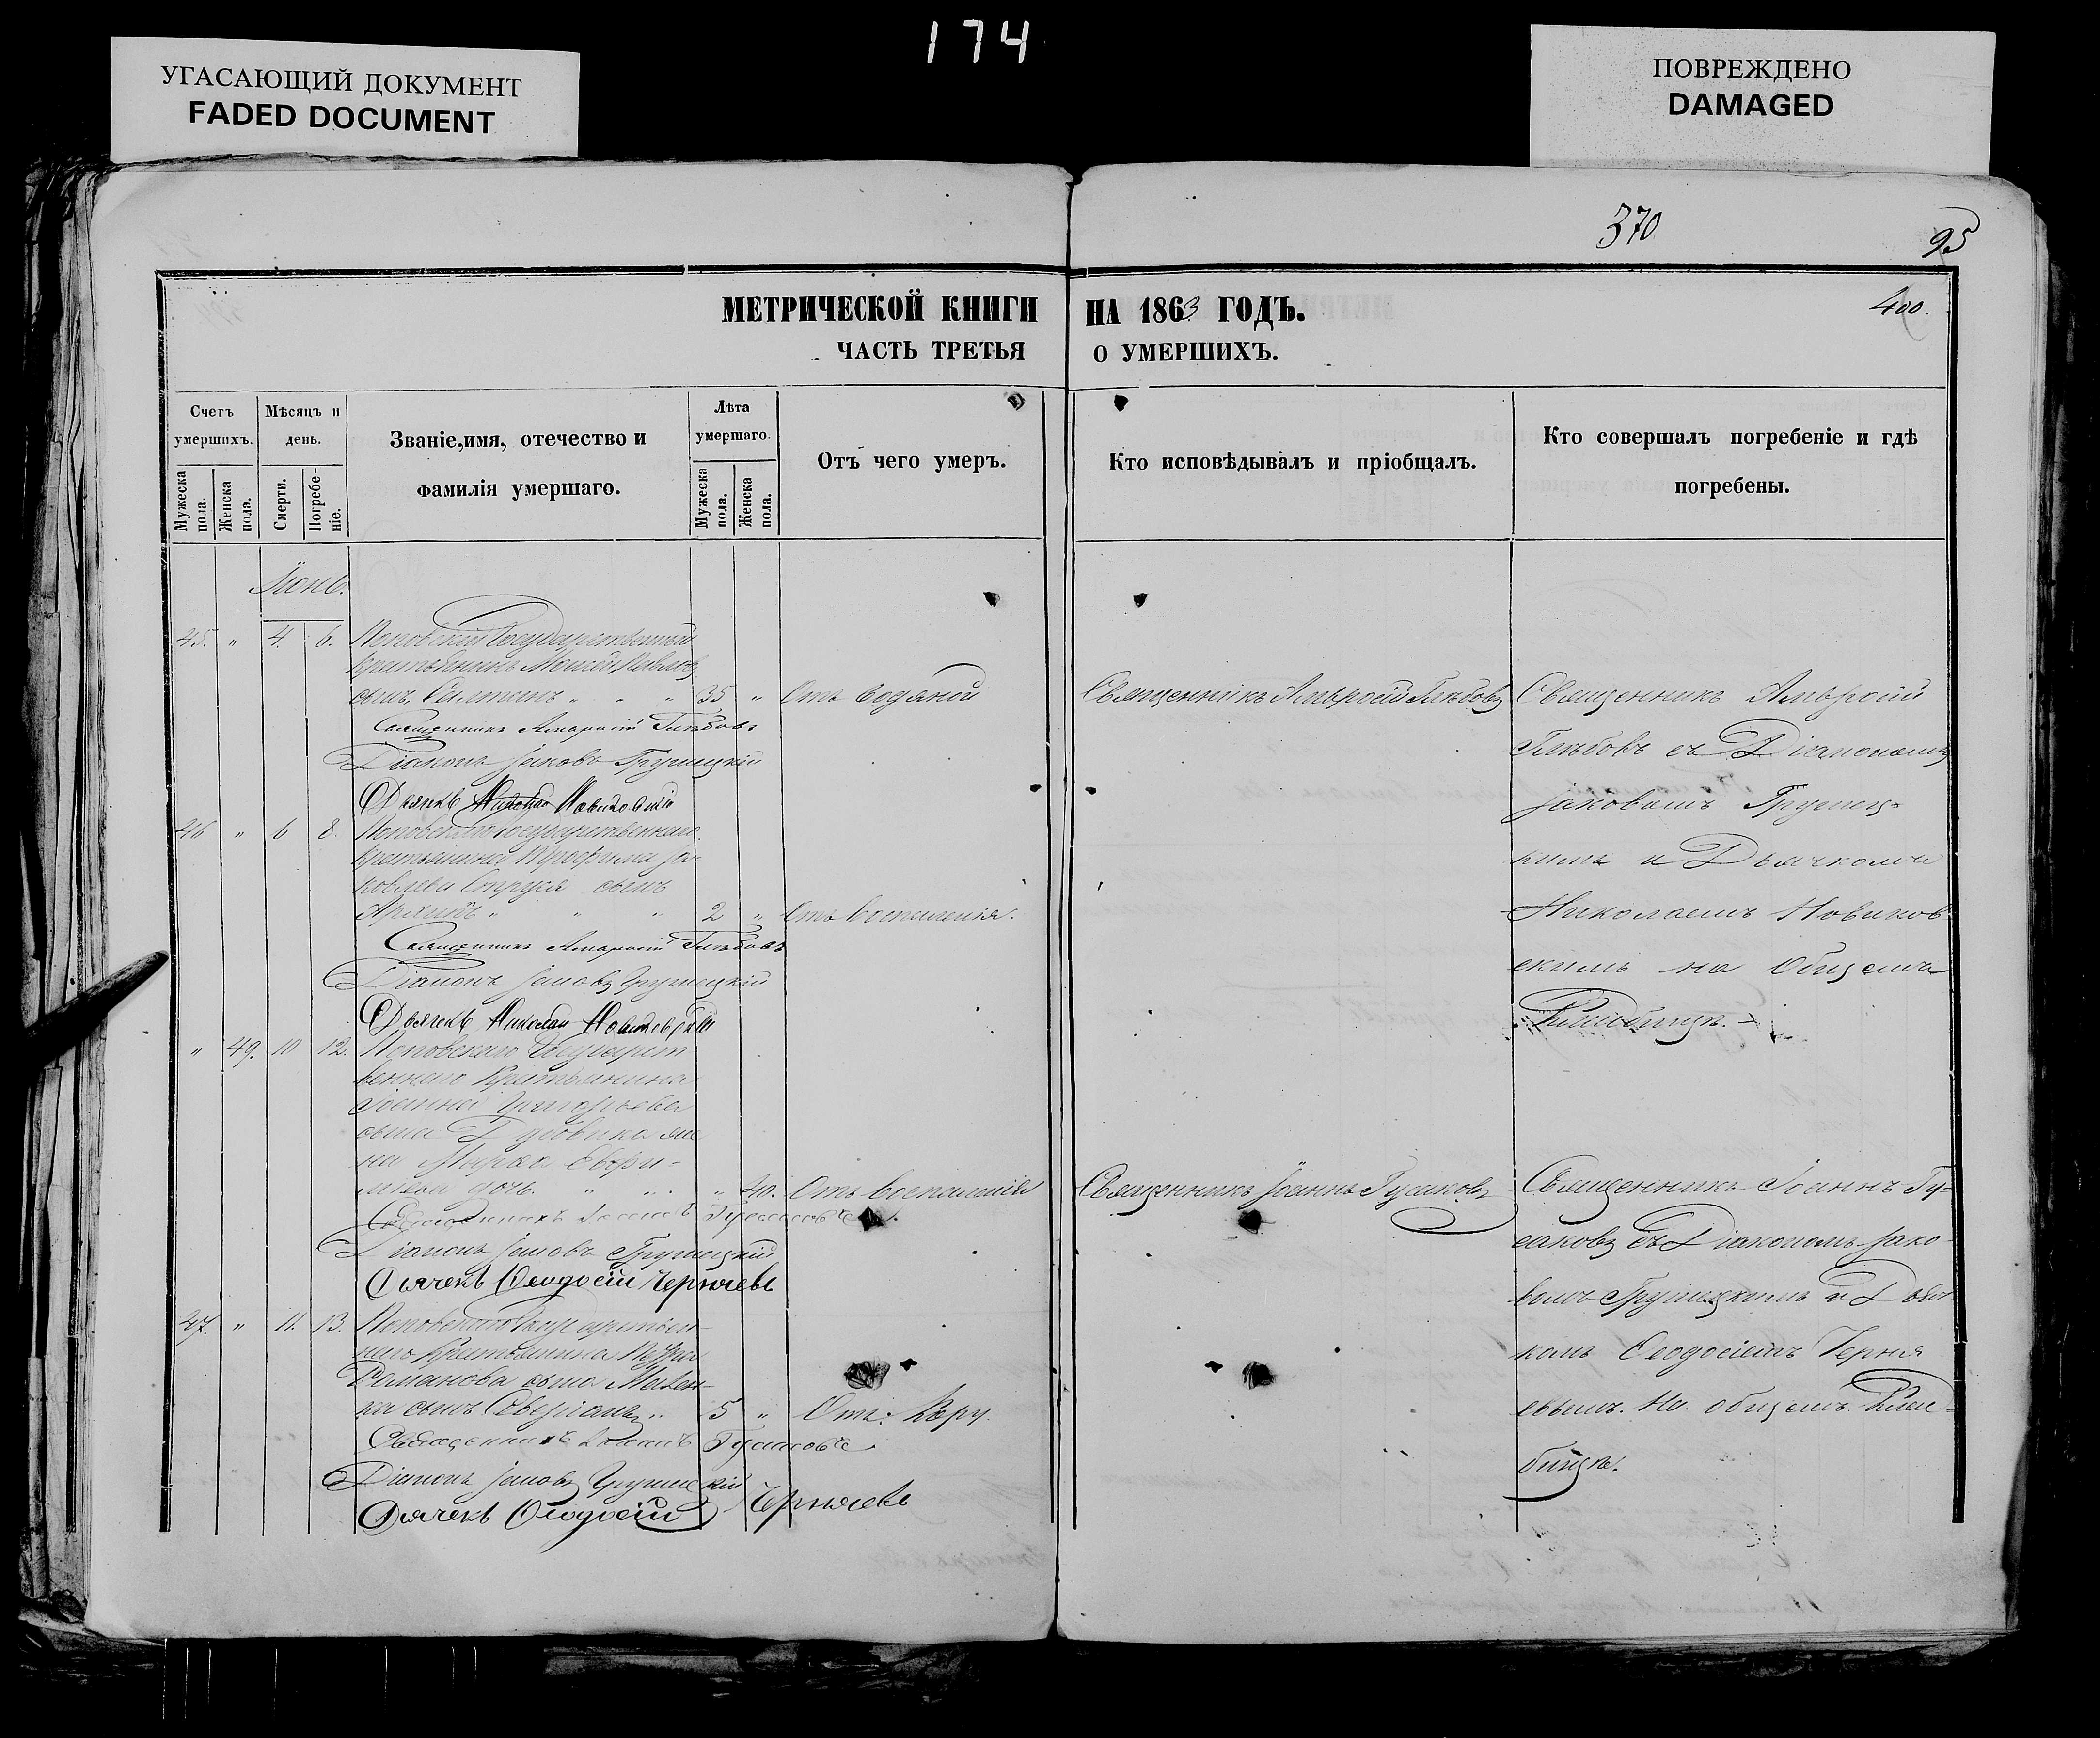 174
УГАСАЮЩИЙ ДОКУМЕНТ
FADED DOCUMENT
ПОВРЕЖДЕНО
DAMAGED
370
95
МЕТРИЧЕСКОЙ КНИГИ НА 1863 ГОДЪ.
400.
ЧАСТЬ ТРЕТЬЯ О УМЕРШИХЪ.
Счетъ умершихъ.
Мужеска пола.
Женска пола.
Мѣсяцъ и день.
Смерти.
Погребеніе.
Званіе, имя, отечество и
фамилія умершаго.
Лѣта умершаго.
Мужеска пола.
Женска пола.
Отъ чего умеръ.
Кто исповѣдывалъ и пріобщалъ.
Кто совершалъ погребеніе и гдѣ
погребены.
Іюнь.
45. " 4. 6. Поповскій Государственный
крестьянинъ Моисей
сынъ " " 35 " Отъ водяной
Священникъ Амвросій Глѣбовъ
Діаконъ Іаковъ Грушецкій
Дьячекъ Николай Новиковскій
46 " 6 8. Поповскаго государственнаго
крестьянина Трофима Яковлева
сынъ
Архипъ " " " 2 " Отъ воспаленія.
Священникъ Амвросій Глѣбовъ
Діаконъ Іаковъ Грушецкій
Дьячекъ Николай Новиковскій
" 49. 10 12. Поповскаго Государственнаго
Крестьянина
Іоанна Григорьева
сына жена
Марфа
дочь. " " " 40. Отъ воспаленія
Священникъ Іоаннъ Гусаковъ
Діаконъ Іаковъ Грушецкій
Дьячекъ Ѳеодосій Черняевъ
47. " 11. 13. Поповскаго Государственнаго
Крестьянина Петра
Романова сына
сынъ " 5 " Отъ Кору.
Священникъ Іоаннъ Гусаковъ
Діаконъ Іаковъ Грушецкій
Дьячекъ Ѳеодосій Черняевъ
Священникъ Амвросій Глѣбовъ
Священникъ Іоаннъ Гусаковъ
Священникъ Амвросій
Глѣбовъ съ Діакономъ
Іаковомъ Грушец-
кимъ и Дьячкомъ
Николаемъ Новиков-
скимъ на общемъ
Кладбищѣ.
Священникъ Іоаннъ Гу-
саковъ съ Діакономъ Іако-
вомъ Грушецкимъ и Дьяч
комъ Ѳеодосіемъ Черня
евымъ. На общемъ Клад-
бищѣ.